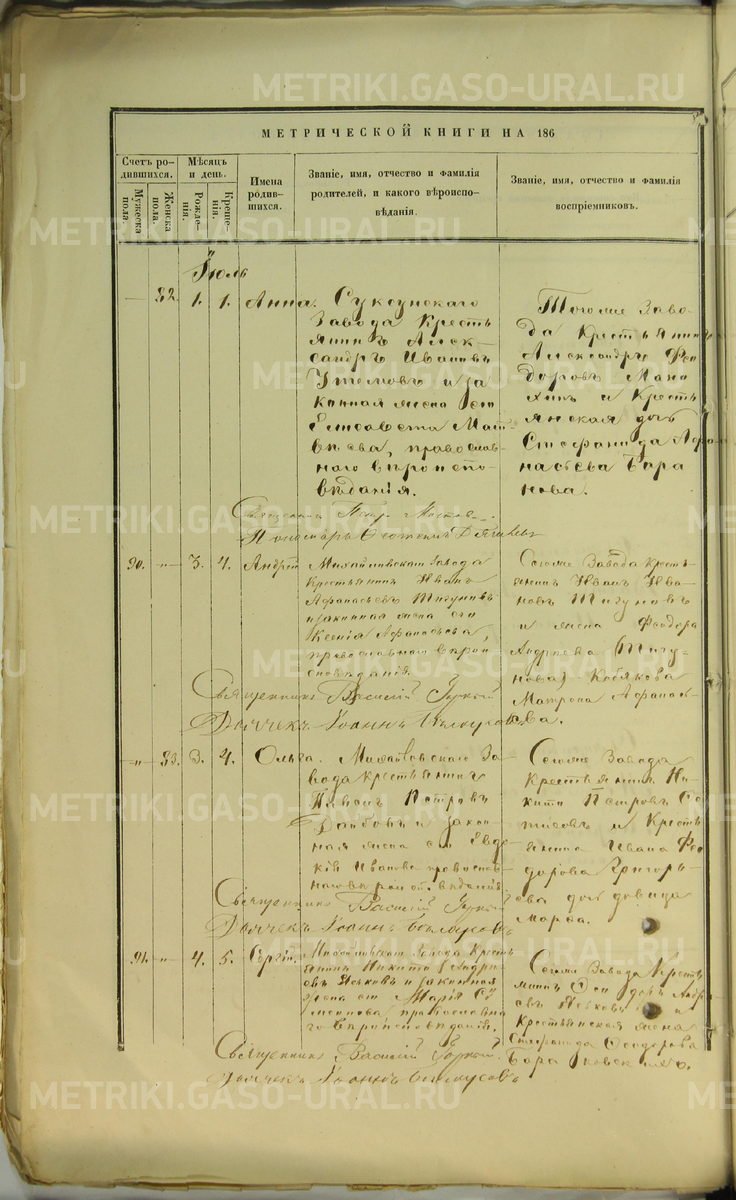 METRIKI.GASO-URAL.RU
МЕТРИЧЕСКОЙ КНИГИ НА 186
Счетъ ро-
дившихся.
Мужеска
пола.
Женска
пола.
Мѣсяцъ
и день.
Рожде-
нія.
Креще-
нія.
Имена
родив-
шихся.
Званіе, имя, отчество и фамилія
родителей, и какого вѣроиспо-
вѣданія.
Званіе, имя, отчество и фамилія
воспріемниковъ.
Іюль
— 82. 1. 1. Анна. Суксунскаго
Завода Кресть
янинъ Алек-
сандръ Ивановъ
Утемовъ и за
конная жена его
Елисавета Мат-
вѣева, православ-
наго вѣроиспо-
вѣданія.
Тогоже Заво-
да Крестьянинъ
Александръ Фео
доровъ Мана
хинъ и Кресть
янская дочь
Стефанида Афа
насьева Бара
нова.
Священникъ Петръ
Пономарь
90. -"- 3. 4. Андрей Михайловскаго Завода
Крестьянинъ Иванъ
Афанасьевъ Тигуновъ
и законная жена его
Ксенія Афанасьева,
православнаго вѣрои
сповѣданія.
Сегоже Завода Кресть-
янинъ Иванъ Ива
новъ Тигуновъ
и жена Феодора
Андреева (Тигу
нова) Кобякова
Матрона Афанась
ева.
Священникъ Василій
Дьячекъ Іоаннъ
-"- 83. 3. 4. Ольга. Михайловскаго За
вода крестьянинъ
Петровъ
и закон
ная жена его Евдо
кія Иванова православ
наго вѣроисповѣданія
Сегоже Завода
Крестьянинъ Ни
кита Петровъ
и Кресть
янина Ивана Фео
дорова Григорь
ева дочь дѣвица
Марѳа.
Священникъ Василій
Дьячекъ Іоаннъ
91. -"- 4. 5. Сергій. Михайловскаго Завода Кресть
янинъ Никита Андре
евъ и законная
жена его Марія Се
менова, православна
го вѣроисповѣданія.
Сегоже Завода Кресть
янинъ Андре
евъ и
Крестьянская жена
Стефанида Феодорова
Священникъ Василій
Дьячекъ Іоаннъ